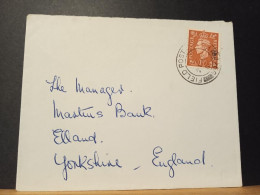 FIELD POST
The Manager.
Martins Bank.
Elland.
Yorkshire, England.